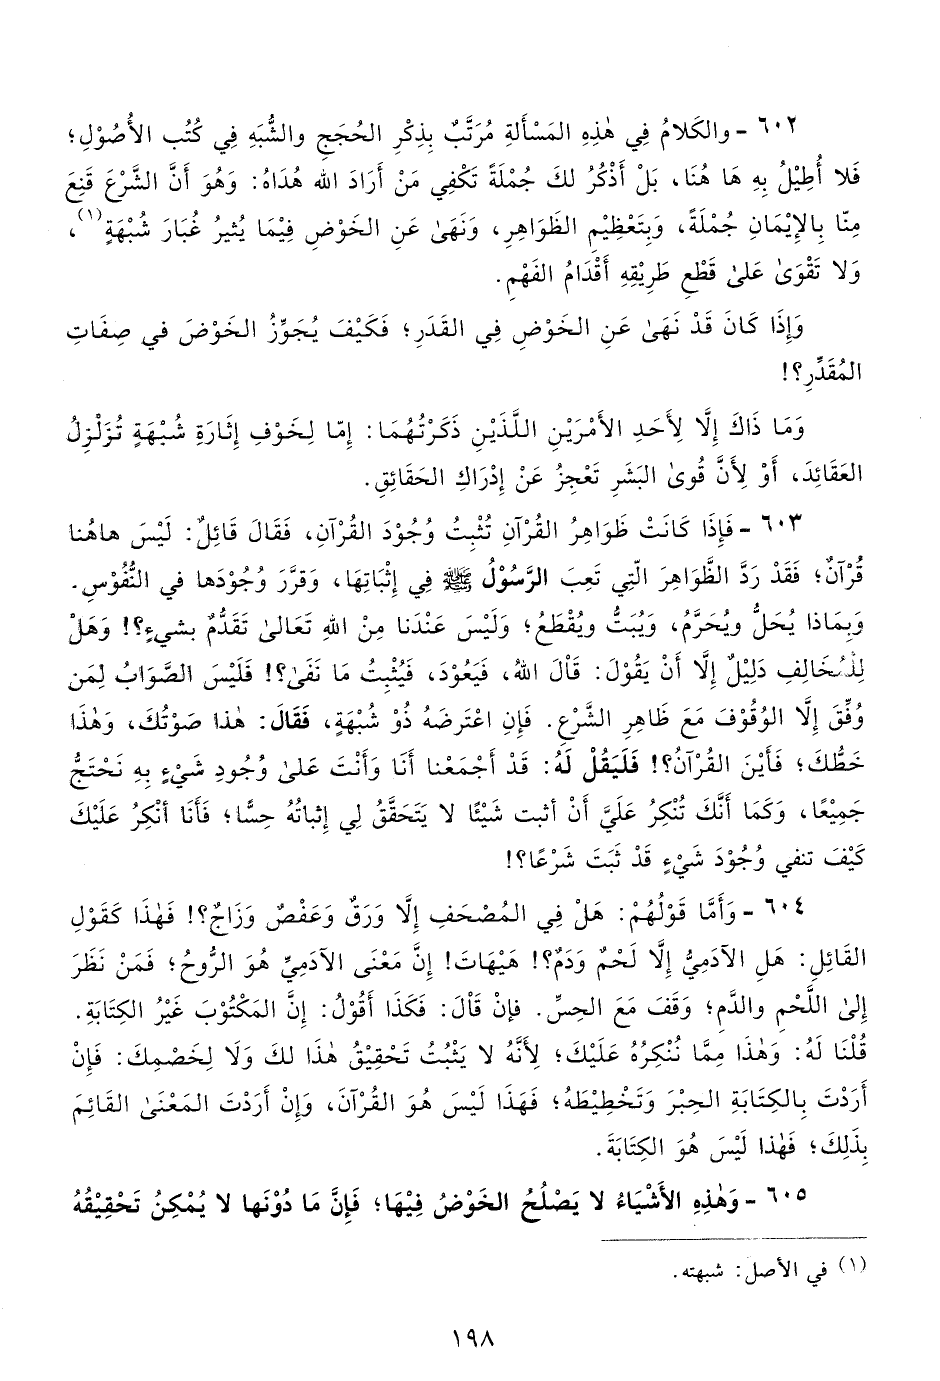 ٦٠٢ - والكَلامُ فِي هٰذِهِ المَسْأَلةِ مُرَتَّبٌ بِذِكْرِ الحُجَجِ والشُّبَهِ فِي كُتُب الأُصُوْلِ؛
فَلا أُطِيْلُ بِهِ هَا هُنَا، بَلْ أَذْكُرُ لكَ جُمْلَةً تَكْفِي مَنْ أَرَادَ الله هُدَاهُ: وَهُوَ أَنَّ الشَّرْعَ قَنِعَ
مِنّا بِالإِيْمَانِ جُمْلَةً، وَبِتَعْظِيْمِ الظَّوَاهِرِ، وَنَهَىٰ عَنِ الخَوْضِ فِيْمَا يُثيرُ غُبَارَ شُبْهَةٍ(١)،
وَلا تَقْوَىٰ عَلىٰ قَطْعِ طَرِيْقِهِ أَقْدَامُ الفَهْمِ.
وَإِذَا كَانَ قَدْ نَهَىٰ عَنِ الخَوْضِ فِي القَدَرِ؛ فَكَيْفَ يُجَوِّزُ الخَوْضَ في صِفَاتِ
المُقَدِّرِ؟!
وَمَا ذَاكَ إِلَّا لِأَحَدِ الأَمْرَيْنِ اللَّذَيْنِ ذَكَرْتُهُمَا: إِمّا لِخَوْفِ إِثَارَةِ شُبْهَةٍ تُزَلْزِلُ
العَقَائِدَ، أَوْ لِأَنَّ قُوىٰ البَشَرِ تَعْجِزُ عَنْ إِدْرَاكِ الحَقَائِقِ.
٦٠٣ - فَإِذَا كَانَتْ ظَوَاهِرُ القُرْآنِ تُثْبِتُ وُجُوْدَ القُرْآنِ، فَقَالَ قَائِلٌ: لَيْسَ هاهُنا
قُرْآنٌ؛ فَقَدْ رَدَّ الظَّوَاهِرَ الّتِي تَعِبَ الرَّسُوْلُ ﷺ فِي إِثْبَاتِهَا، وَقرَّرَ وُجُوْدَها في النُّفُوْسِ.
وَبِمَاذا يُحَلُّ ويُحَرَّمُ، وَيُبَتُّ ويُقْطَعُ؛ وَلَيْسَ عَنْدَنا مِنْ اللهِ تَعَالىٰ تَقَدُّمٌ بشيءٍ؟! وَهَلْ
لِلْمُخَالِفِ دَلِيْلٌ إِلَّا أَنْ يَقُوْلَ: قَاْلَ اللهُ، فَيَعُوْدَ، فَيُثْبِتُ مَا نَفَىٰ؟! فَلَيْسَ الصَّوَابُ لِمَن
وُفِّقَ إِلَّا الوُقُوْفَ مَعَ ظَاهِرِ الشَّرْعِ. فَإِنِ اعْتَرَضَهُ ذُو شُبْهَةٍ، فَقَالَ: هٰذا صَوْتُكَ، وَهٰذَا
خَطُّكَ؛ فَأَيْنَ القُرْآنُ؟! فَلْيَقُلْ لَهُ: قَدْ أَجْمَعْنا أَنَا وَأَنْتَ عَلىٰ وُجُودِ شَيْءٍ بِهِ نَحْتَجُّ
جَمِيْعًا، وَكَمَا أَنَّكَ تُنْكِرُ عَلَيَّ أَنْ أثبت شَيْئًا لا يَتَحَقَّقُ لِي إِثباتُهُ حِسًّا؛ فَأَنَا أنْكِرُ عَلَيْكَ
كَيْفَ تنفي وُجُوْدَ شَيْءٍ قَدْ ثَبَتَ شَرْعًا؟!
٦٠٤ - وَأَمَّا قَوْلُهُمْ: هَلْ فِي المُصْحَفِ إِلَّا وَرَقٌ وَعَفْصٌ وَزَاجٌ؟! فَهٰذَا كَقَوْلِ
القَائِلِ: هَلِ الآدَمِيُّ إِلَّا لَحْمٌ وَدَمٌ؟! هَيْهَاتَ! إِنَّ مَعْنَى الآدَمِيِّ هُوَ الرُّوحُ؛ فَمَنْ نَظَرَ
إِلىٰ اللَّحْمِ والدَّمِ؛ وَقَفَ مَعَ الحِسِّ. فإنْ قَاْلَ: فَكَذَا أَقُوْلُ: إِنَّ المَكْتُوْبَ غَيْرُ الكِتَابَةِ.
قُلْنَا لَهُ: وَهٰذَا مِمَّا نُنْكِرُهُ عَلَيْكَ؛ لِأَنَّهُ لا يَثْبُتُ تَحْقِيْقُ هٰذَا لكَ وَلَا لِخَصْمِكَ: فَإِنْ
أَرَدْتَ بِالكِتَابَةِ الحِبْرَ وَتَخْطِيْطَهُ؛ فَهَذَا لَيْسَ هُوَ القُرْآنَ، وَإِنْ أَرَدْتَ المَعْنَىٰ القَائِمَ
بِذَلِكَ؛ فَهٰذا لَيْسَ هُوَ الكِتَابَةَ.
٦٠٥ - وَهٰذِهِ الأَشْيَاءُ لا يَصْلُحُ الخَوْضُ فِيْهَا؛ فَإِنَّ مَا دُوْنَها لا يُمْكِنُ تَحْقِيْقُهُ
(١) في الأصل: شبهته.
١٩٨